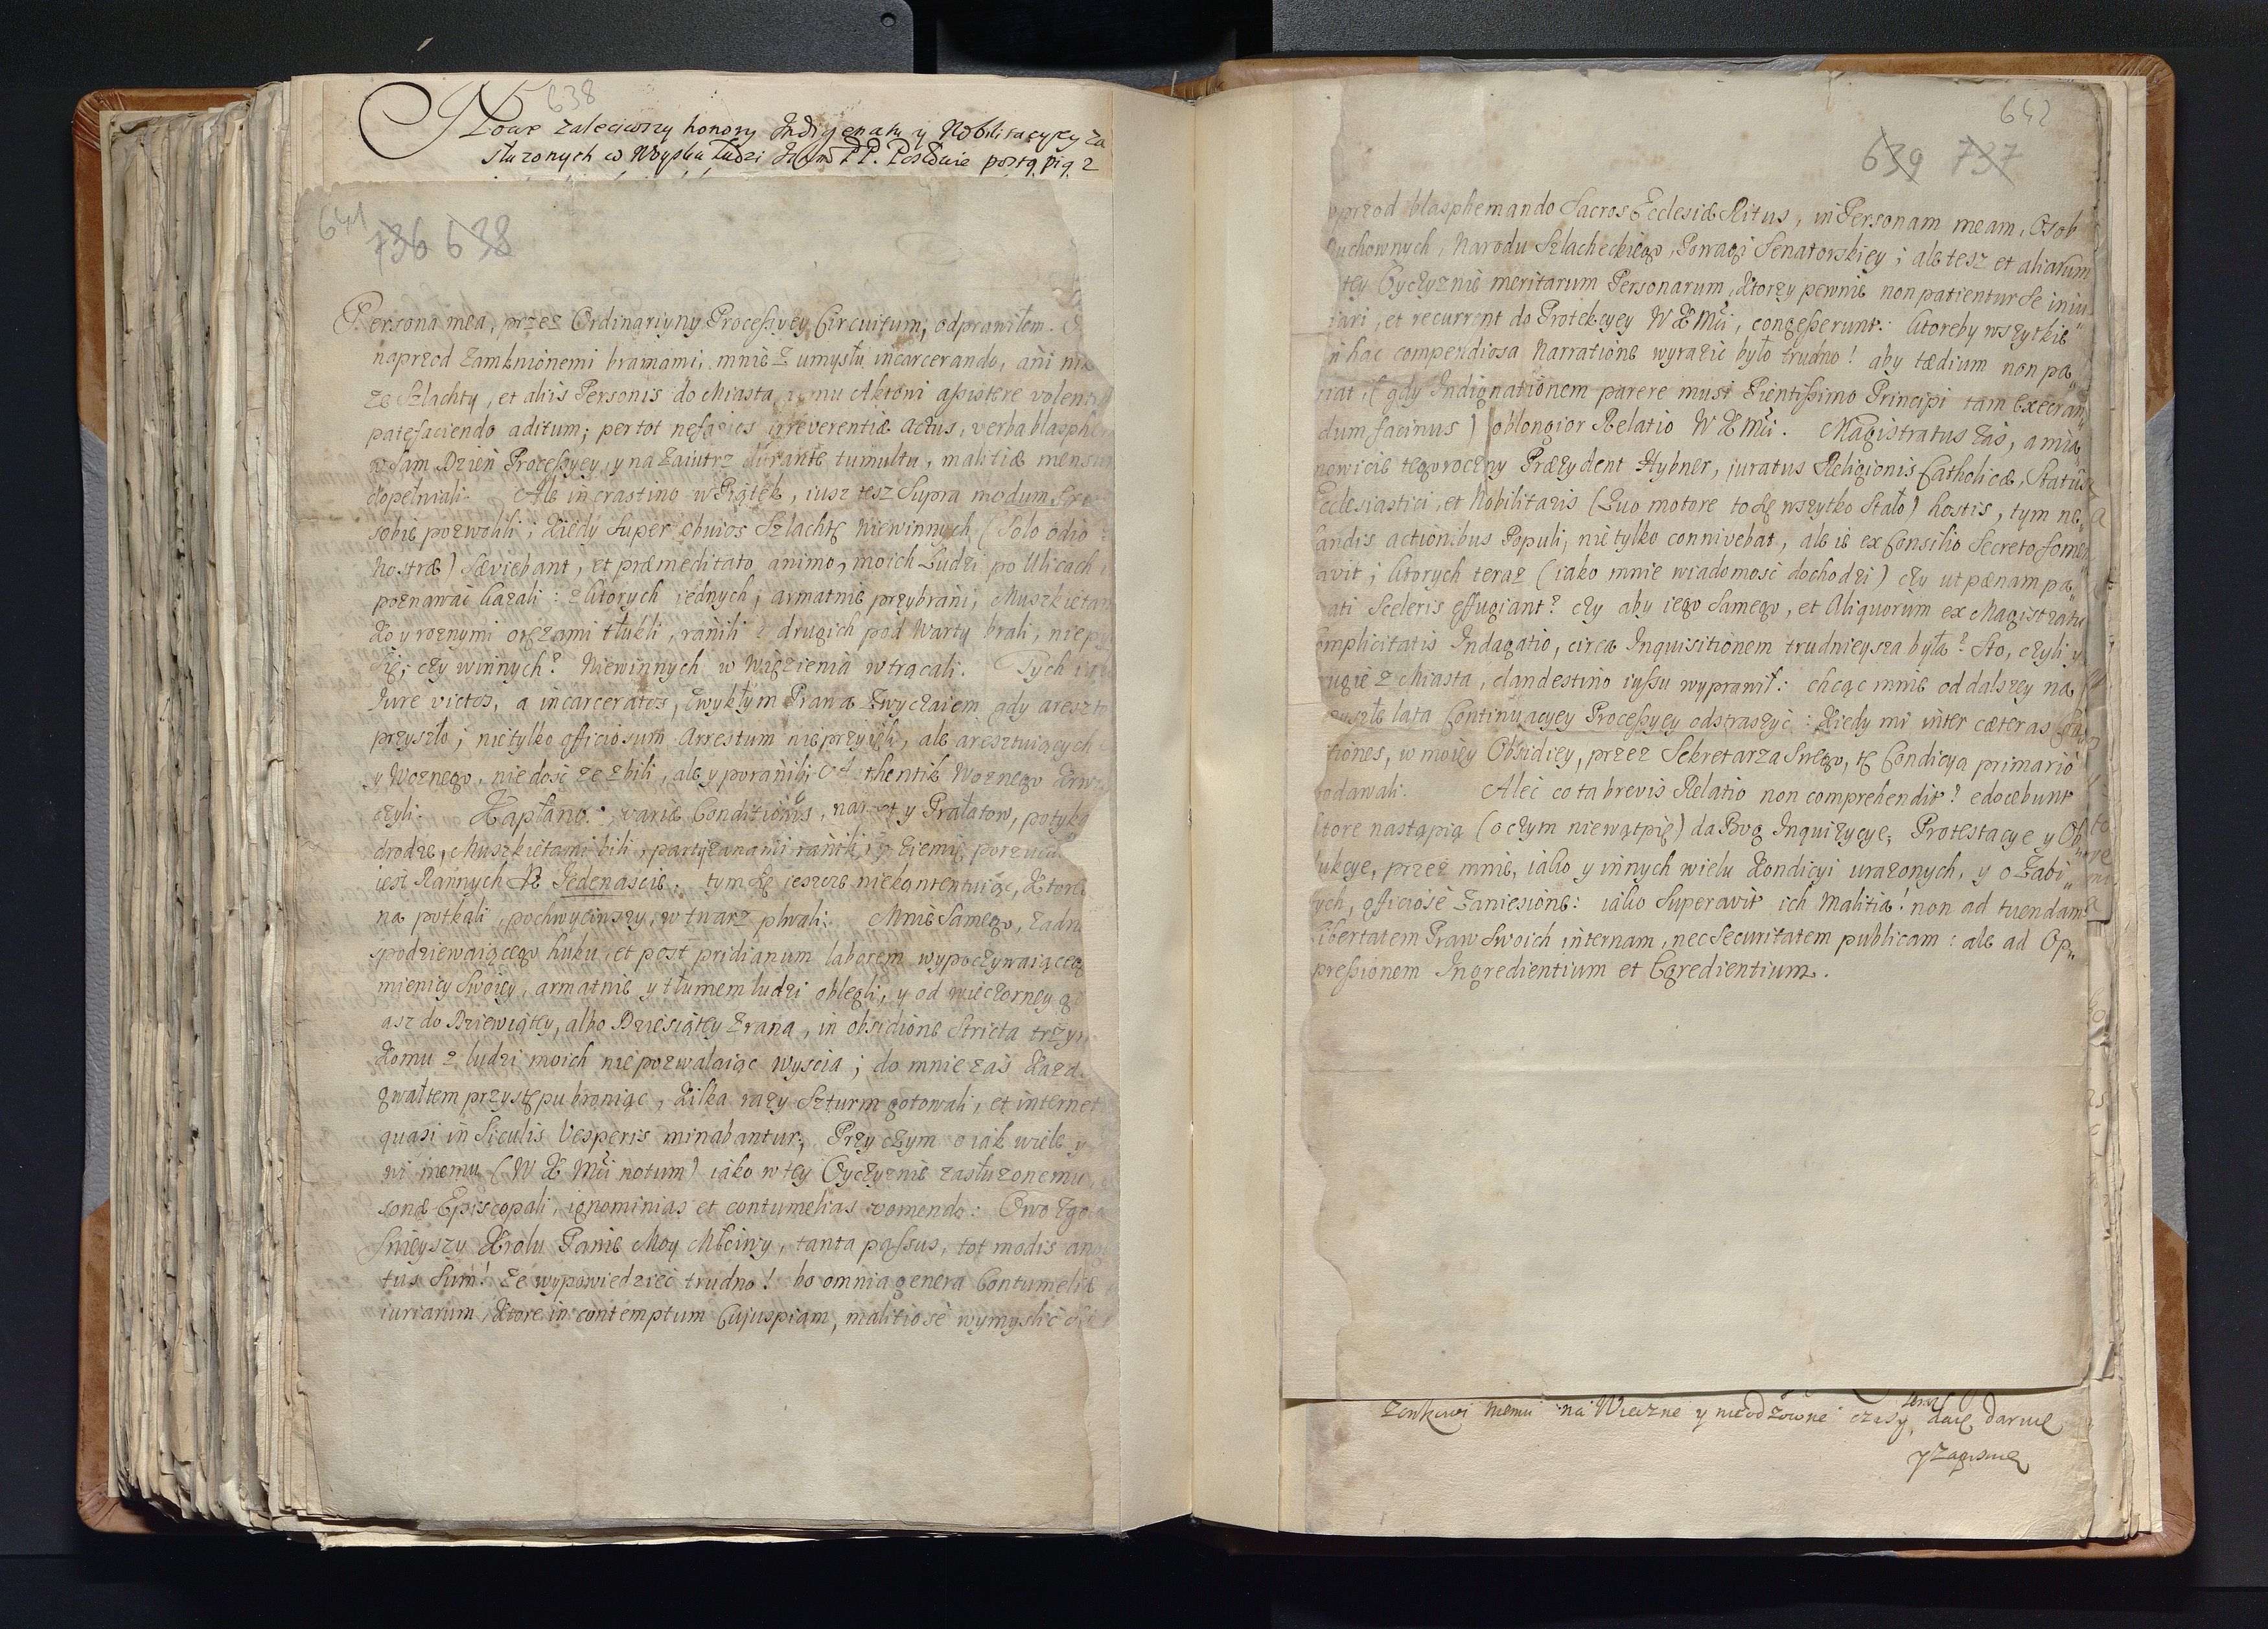 638
Nowe zaleciwszy honory Indigenatu y Nobilitacyey za
służonych w Woysku ludzi Ichm PP. Posłowie postąpią z
641 736 638
Persona mea, przez Ordinariyny Processyey Circuitum, odprawiłem.
naprzod zamknionemi bramami, mnie z umysłu incarcerando, ani
ze Szlachty, et aliis Personis do Miasta, temu Aktowi assistere volent
patefaciendo aditum; per tot irreverentiæ actus, verba blasphe
w sam Dzien Processyey, y na zaiutrz durante tumultu, malitiæ mensur
dopełniali. Ale in crastino w Piątek, iusz tesz supra modum
sobie pozwolili; kiedy super obuios Szlachtę niewinnych (Solo odio
nostræ) sæviebant, et præmeditato animo, moich Ludzi po Ulicach
poznawać kazali: z ktorych iednych, armatnie przybrani, Muszkietam
ko y roznymi orężami tłukli, ranili z drugich pod Warty brali, nie
się, czy winnych? Niewinnych w Więzienia wtrącali. Tych
Iure victos, a incarceratos, zwykłym Prawa zwyczaiem gdy areszto
przyszło; nie tylko officiosum Arrestum nie przyięli, ale aresztuiących
y Woznego, nie dosć ze zbili, ale y poranili, Woznego
czyli. Kapłanow variæ Conditionis, nawet y Prałatow, potyka
drodze, Muszkietami bili, partyzanami ranili, y o ziemię porzuca
iest Rannych Nº Iedenascie. tym się ieszcze nie kontentuiąc, ktore
na potkali, pochwyciwszy, w twarz plwali. Mnie Samego, zadn
spodziewaiącego huku, et post pridianum laborem wypoczywaiąceg
mienicy swoiey, armatnie y tłumem ludzi oblegli, y od wieczorney g
asz do Dziewiątey, albo Dziesiątey zrana, in obsidione stricta trzy
komu z ludzi moich nie pozwalaiąc wyscia; do mnie zaś kazd
gwałtem przystępu broniąc, kilka razy Szturm gotowali, et internet
quasi in Siculis Vesperis minabantur. Przy czym o iak wiele y
wi memu (W K Mći notum) iako w tey Oyczyznie zasłuzonemu,
sonæ Episcopali, ignominias et contumelias vomendo: Owo zgo
snieyszy Krolu Panie Moy Mściwy, tanta passus, tot modis
tus Sum! Ze wypowiedziec trudno! bo omnia genera Contumeliæ
iuriarum, ktore in contemptum Cujuspiam, malitiose wymyslić
642
639 737
naprzod blasphemando Sacros Ecclesiæ Ritus, in Personam meam, Osob
Duchownych, Narodu Szlacheckiego, Powagi Senatorskiey; ale tesz et aliarum
tey Oyczyznie meritarum Personarum, ktorzy pewnie non patientur se iniu
iari, et recurrent do Protekcyey W K Mći, congesserunt: ktoreby wszytkie"
in hac compendiosa Narratione wyrazic było trudno! aby tædium non pa"
riat (gdy Indignationem parere musi Pientissimo Principi tam execran"
dum facinus) oblongior Relatio W K Mći. Magistratus zaś, a mia"
nowicie tegoroczny Præzydent Hybner, iuratus Religionis Catholicæ, Status
Ecclesiastici, et Nobilitatis (Quo motore to się wszytko stało) hostis, tym ne"
fandis actionibus Populi, nie tylko connivebat, ale ie ex Consilio Secreto fomen
tavit; ktorych teraz (iako mnie wiadomosć dochodzi) czy ut pænam pa"
trati Sceleris effugiant? czy aby iego Samego, et Aliquorum ex Magistratu
omplicitatis Indagatio, circa Inquisitionem trudnieysza była? Sto, czyli y
drugie z Miasta, clandestino iussu wyprawił: chcąc mnie od dalszey na
przyszłe lata Continuacyey Processyey odstraszyć: kiedy mi inter cæteras
tiones, w moiey Obsidiey, przez Sekretarza Swego, tę Condicyą primario
podawali. Aleć co ta brevis Relatio non comprehendit? edocebunt
ktore nastąpią (o czym nie wątpię) da Bog Inquizycye, Protestacye y Ob"
dukcye, przez mnie, iako y innych wielu kondicyi urazonych, y o Zabi"
tych, officiose zaniesione: iako Superavit ich Malitia! non ad tuendam
Libertatem Praw Swoich internam, nec Securitatem publicam: ale ad Op"
pressionem Ingredientium et Egredientium.
memu na Wieczne y nieodzowne czasy, daię daruię
teraz
y Zapisuię